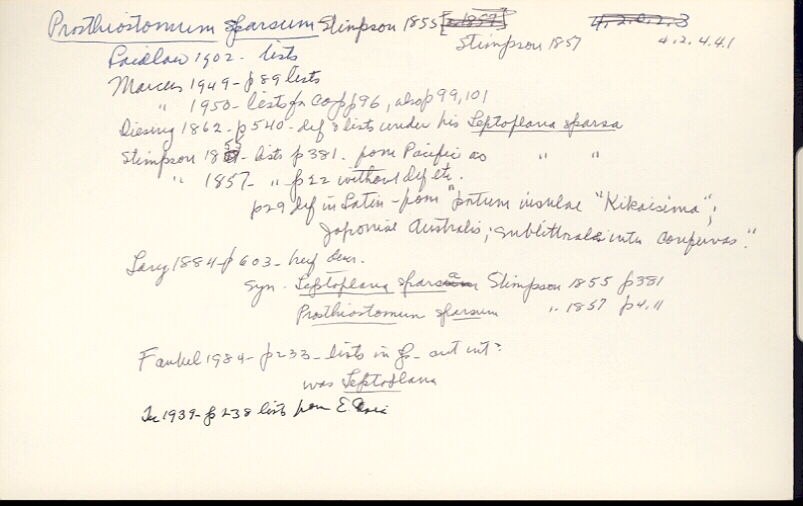 Prosthiostomum sparsum Stimpson 1855 [= 1857] 4.2.0.2.3
Stimpson 1857 4.2.4.4.1
Laidlaw 1902 - lists
Marcus 1949 - p 89 lists
" 1950 - lists fn Co pp 96, also p 99, 101
Diesing 1862 - p 540 - def & lists under his Leptoplana sparsa
Stimpson 1855 - lists p 381. from Pacific as " "
" 1857 - " p 22 without def etc.
p 29 def in Latin - from "portum insulae "Kikaisima";
Japoniae Australis; sublittoralis inter confervas."
Lang 1884 - p 603 - brief descr.
Syn - Leptoplana sparsa Stimpson 1855 p 381
Prosthiostomum sparsum " 1857 p 4, 11
Faubel 1984 - p 233 - lists in g -
was Leptoplana
1939 - p 238 lists from E. Asia